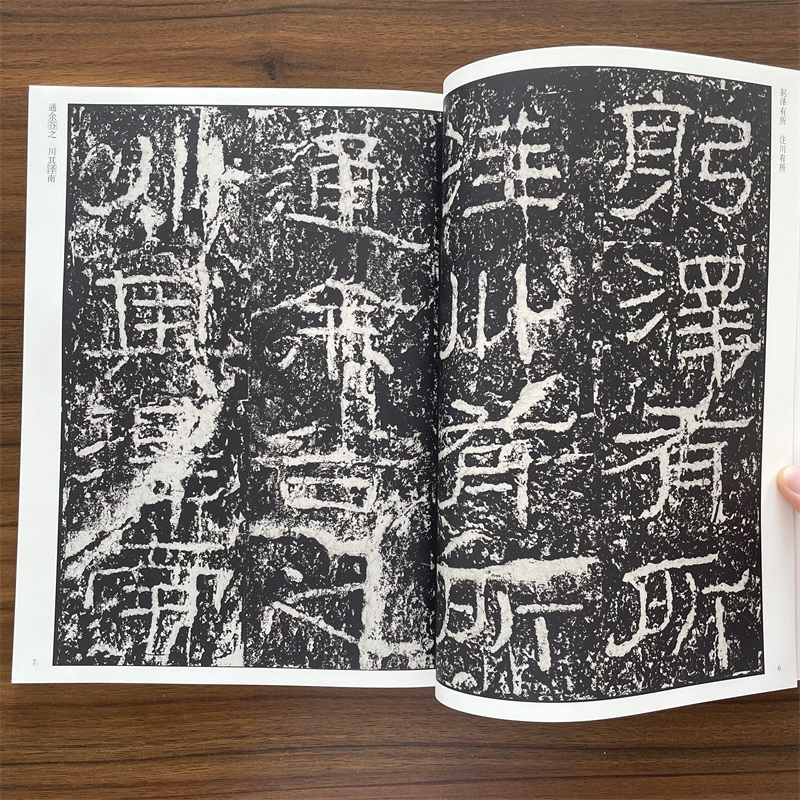 躬泽有所　注川有所
躬澤有所
注川有所
6
通余谷之
川其澤南
通余谷之　川其泽南
7